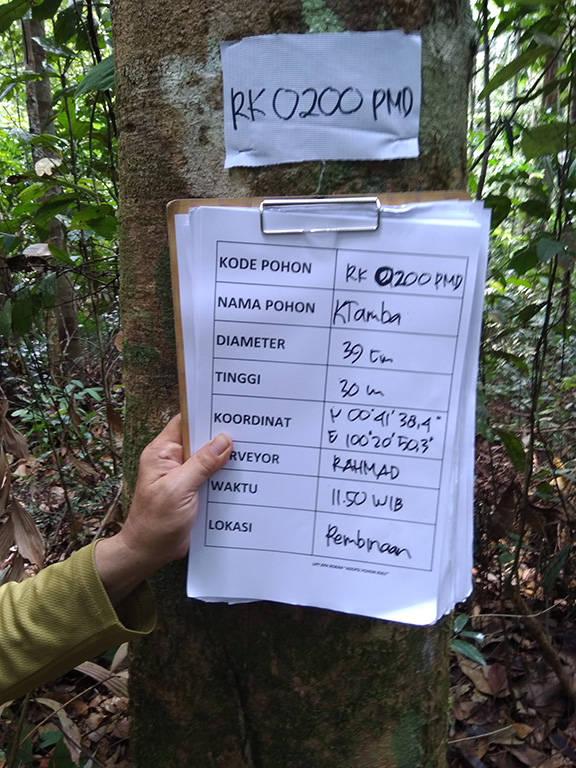 RK 0200 PMD
KODE POHON RK 0200 PMD
NAMA POHON KTamba
DIAMETER 39 cm
TINGGI 30 m
KOORDINAT N 00°41'38,4"
E 100°20'50,3"
RVEYOR RAHMAD
WAKTU 11.50 WIB
LOKASI Pembinaan